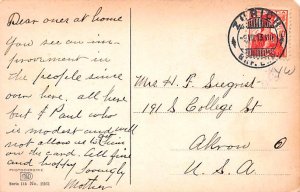 Dear ones at home
You see an im-
provement in
the people since
over here, all here
but I Paul who
is modest and will
not allow us to
on the card. All fine
and happy.
Lovingly
Mother
ZÜRICH
Mrs H. F. Siegrist
191 S College St
Akron O
U. S. A.
Serie 115 No.